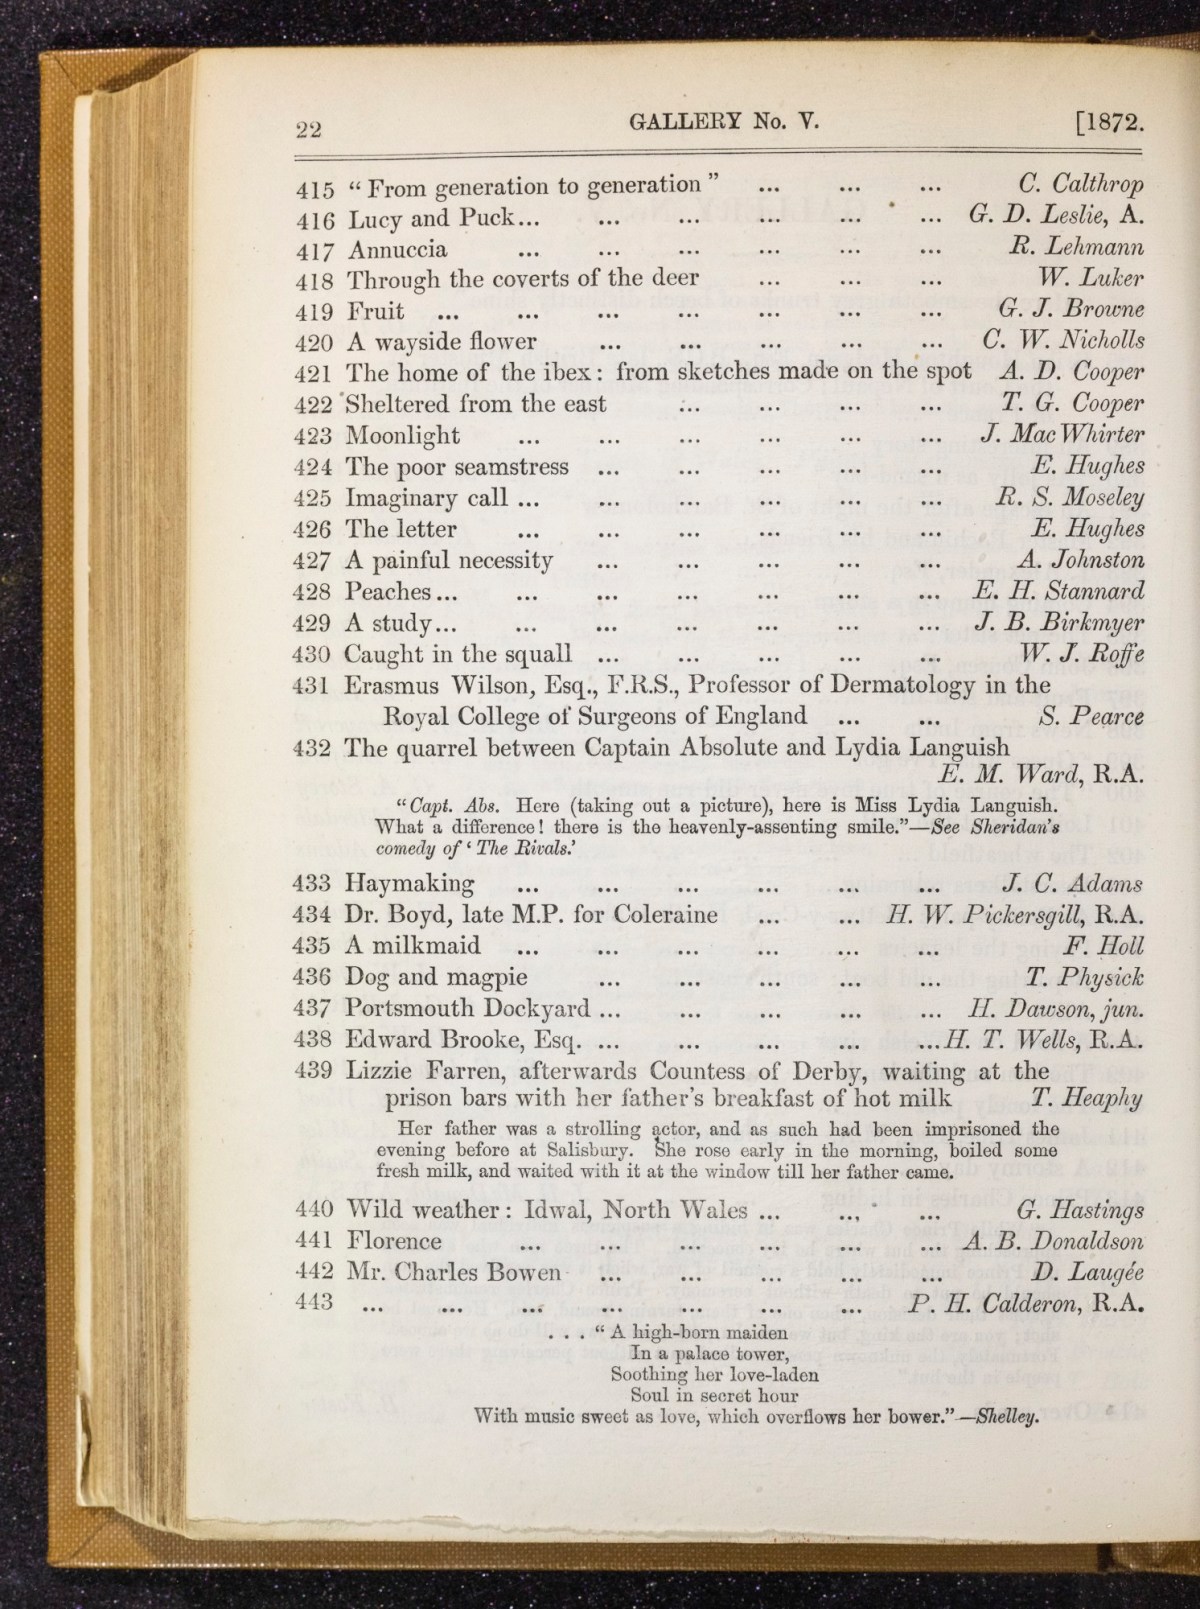 22 GALLERY No. V. [1872.
415 “ From generation to generation ” ... ... ... C. Calthrop
416 Lucy and Puck... ... ... ... ... ... G. D. Leslie, A.
417 Annuccia ... ... ... ... ... ... R. Lehmann
418 Through the coverts of the deer ... ... ... W. Luker
419 Fruit ... ... ... ... ... ... ... G. J. Browne
420 A wayside flower ... ... ... ... ... C. W. Nicholls
421 The home of the ibex : from sketches made on the spot A. D. Cooper
422 Sheltered from the east ... ... ... ... T. G. Cooper
423 Moonlight ... ... ... ... ... ... J. MacWhirter
424 The poor seamstress ... ... ... ... ... E. Hughes
425 Imaginary call ... ... ... ... ... ... R. S. Moseley
426 The letter ... ... ... ... ... ... E. Hughes
427 A painful necessity ... ... ... ... ... A. Johnston
428 Peaches... ... ... ... ... ... ... E. H. Stannard
429 A study... ... ... ... ... ... ... J. B. Birkmyer
430 Caught in the squall ... ... ... ... ... W. J. Roffe
431 Erasmus Wilson, Esq., F.R.S., Professor of Dermatology in the
Royal College of Surgeons of England ... ... S. Pearce
432 The quarrel between Captain Absolute and Lydia Languish
E. M. Ward, R.A.
“Capt. Abs. Here (taking out a picture), here is Miss Lydia Languish.
What a difference! there is the heavenly-assenting smile.”—See Sheridan's
comedy of ‘ The Rivals.’
433 Haymaking ... ... ... ... ... ... J. C. Adams
434 Dr. Boyd, late M.P. for Coleraine ... ... H. W. Pickersgill, R.A.
435 A milkmaid ... ... ... ... ... ... F. Holl
436 Dog and magpie ... ... ... ... ... T. Physick
437 Portsmouth Dockyard ... ... ... ... ... H. Dawson, jun.
438 Edward Brooke, Esq. ... ... ... ... ...H. T. Wells, R.A.
439 Lizzie Farren, afterwards Countess of Derby, waiting at the
prison bars with her father's breakfast of hot milk T. Heaphy
Her father was a strolling actor, and as such had been imprisoned the
evening before at Salisbury. She rose early in the morning, boiled some
fresh milk, and waited with it at the window till her father came.
440 Wild weather : Idwal, North Wales ... ... ... G. Hastings
441 Florence ... ... ... ... ... ... A. B. Donaldson
442 Mr. Charles Bowen ... ... ... ... ... D. Laugée
443 ... ... ... ... ... ... ... P. H. Calderon, R.A.
. . . “ A high-born maiden
In a palace tower,
Soothing her love-laden
Soul in secret hour
With music sweet as love, which overflows her bower.”—Shelley.